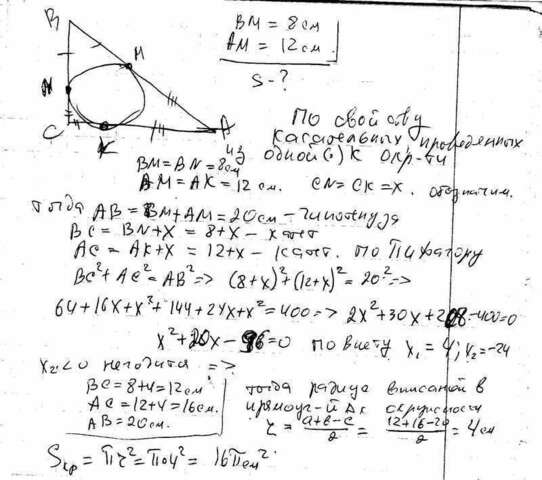 B
M
N
C
K
A
BM = 8см
AM = 12см.
S-?
По свойству
касательных проведенных
из одной (•) к окр-ти
BM = BN = 8см
AM = AK = 12 см. CN = CK = x. обозначим.
тогда AB = BM + AM = 20см - гипотенуза
BC = BN + x = 8 + x - катет
AC = AK + x = 12 + x - катет. по Пифагору
BC² + AC² = AB² => (8+x)² + (12+x)² = 20² =>
64 + 16x + x² + 144 + 24x + x² = 400 => 2x² + 30x + 208 - 400 = 0
x² + 20x - 96 = 0 по виету x₁ = 4; x₂ = -24
x₂ < 0 негодится =>
BC = 8 + 4 = 12см
AC = 12 + 4 = 16см.
AB = 20см.
тогда радиус вписаной в
прямоуг-й Δк окружности
r = (a+b-c)/2 = (12+16-20)/2 = 4см
Sкр = πr² = π·4² = 16π см²